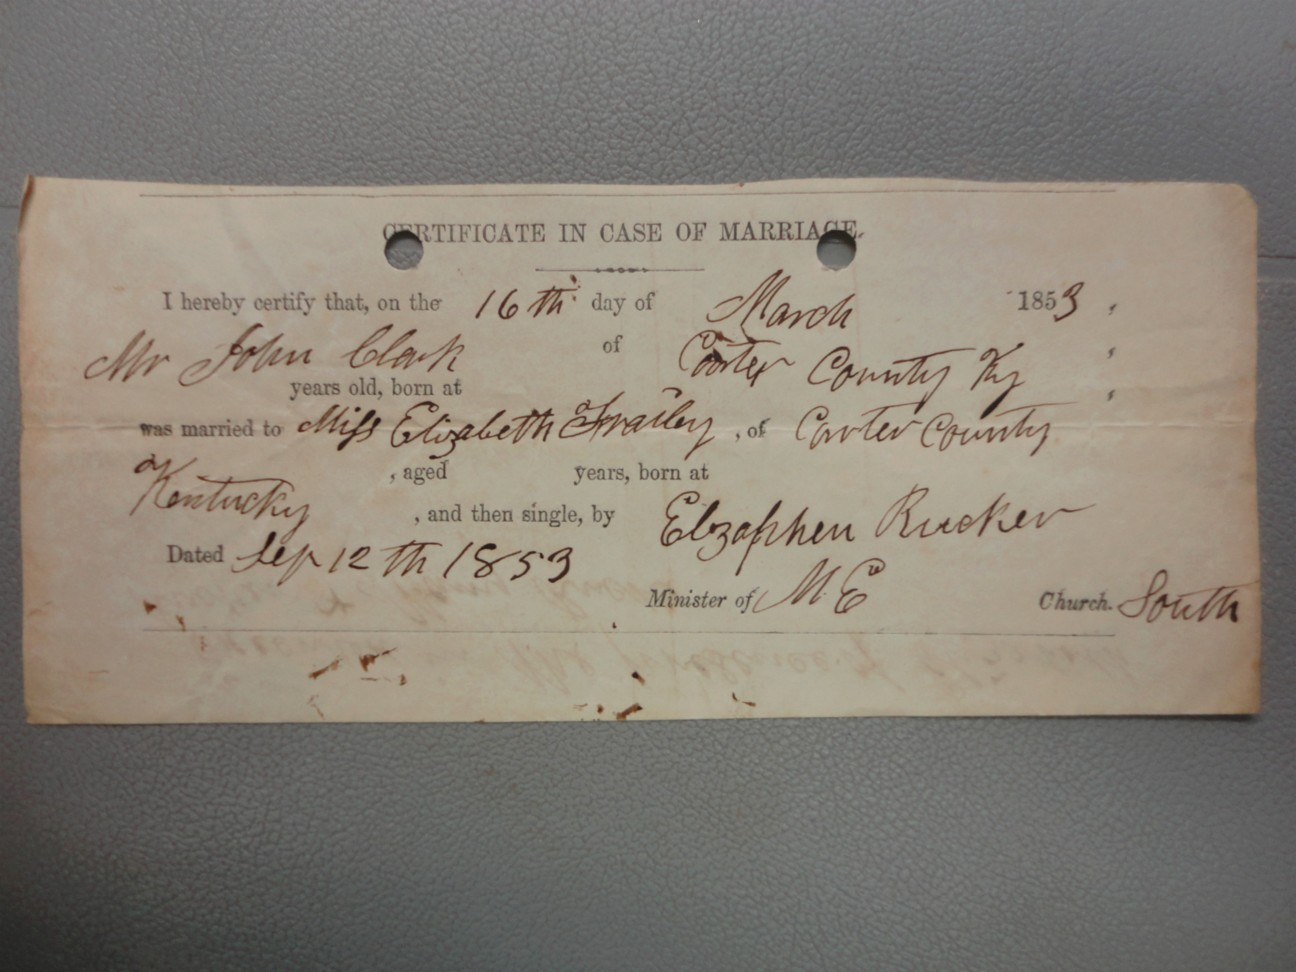 CERTIFICATE IN CASE OF MARRIAGE.
I hereby certify that, on the 16th day of March 1853,
Mr John Clark of Carter County Ky,
years old, born at
was married to Miss Elizabeth Frailey, of Carter County
Kentucky, aged years, born at
, and then single, by Elzaphen Rucker
Dated Sep 12th 1853
Minister of M.E Church. South